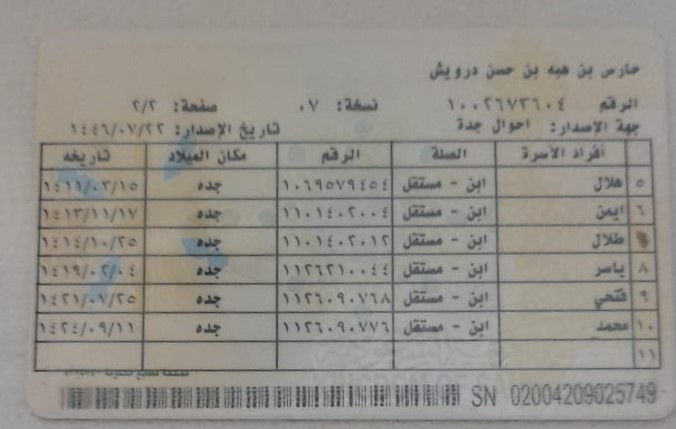 حارس بن هبه بن حسن درويش
الرقم ١٠٠٢٦٧٣٦٠٤ نسخة: ٠٧ صفحة: ٢/٢
جهة الإصدار: احوال جدة تاريخ الإصدار: ١٤٤٦/٠٧/٢٢
أفراد الأسرة الصلة الرقم مكان الميلاد تاريخه
٥ هلال ابن - مستقل ١٠٦٩٥٧٩٤٥٤ جده ١٤١١/٠٣/١٥
٦ ايمن ابن - مستقل ١١٠١٤٠٢٠٠٤ جده ١٤١٣/١١/١٧
طلال ابن - مستقل ١١٠١٤٠٢٠١٢ جده ١٤١٤/١٠/٢٥
٨ ياسر ابن - مستقل ١١٢٦٢١٠٠٤٤ جده ١٤١٩/٠٢/٠٤
٩ فتحي ابن - مستقل ١١٢٦٠٩٠٧٦٨ جده ١٤٢١/٠٧/٢٥
١٠ محمد ابن - مستقل ١١٢٦٠٩٠٧٧٦ جده ١٤٢٤/٠٩/١١
١١
SN 02004209025749